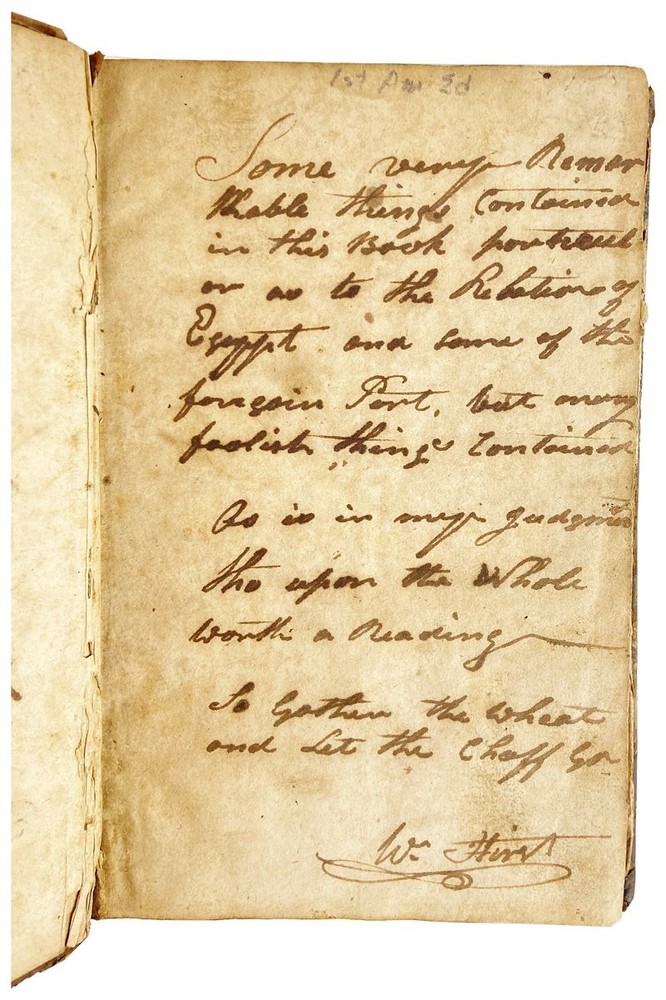 1st Am Ed
Some very Remar
kable things Contained
in this Book particul
or as to the Relation of
Egyppt and some of the
foregoin Part, but many
foolish things Contained
As is in my Judgmen
tho upon the Whole
worth a Reading
So Gather the wheat
and Let the Chaff Go
Wm Hirst